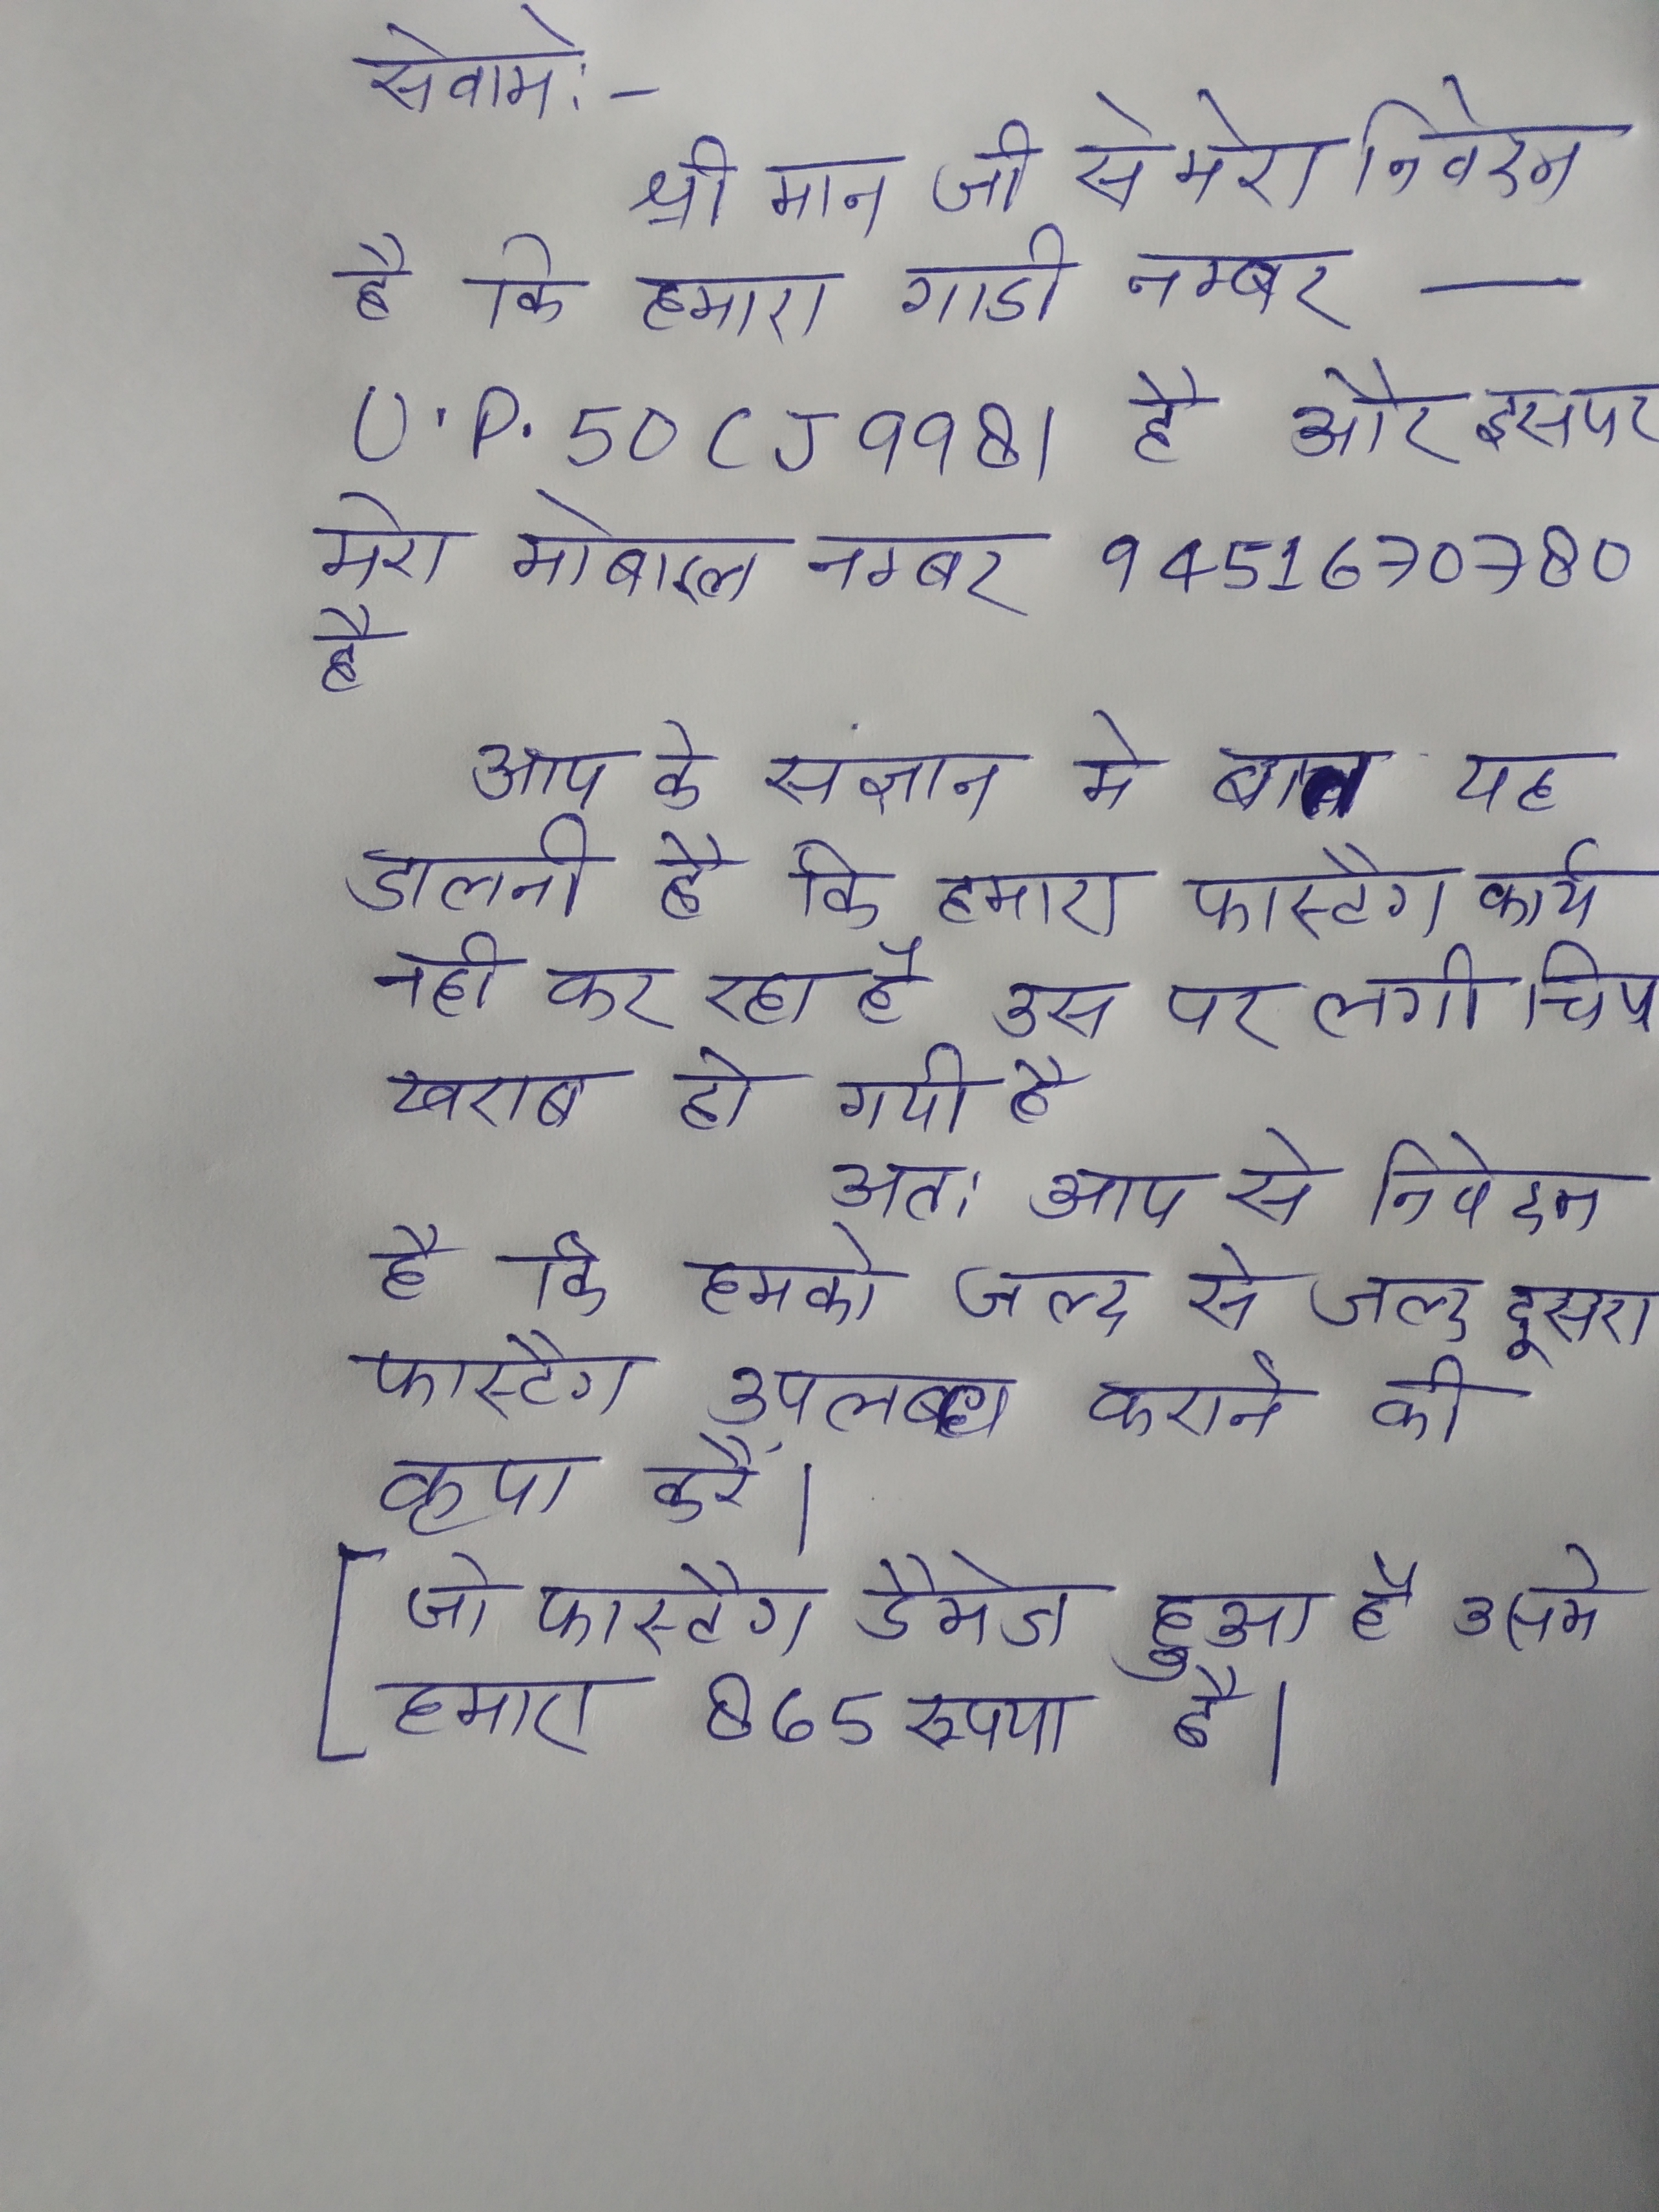 सेवामे:-
श्री मान जी से मेरा निवेदन
है कि हमारा गाडी नम्बर —
U.P. 50 CJ 9981 है और इसपर
मेरा मोबाइल नम्बर 9451670780
है
आप के संज्ञान मे बात यह
डालनी है कि हमारा फास्टैग कार्य
नही कर रहा है उस पर लगी चिप
खराब हो गयी है
अतः आप से निवेदन
है कि हमको जल्द से जल्द दूसरा
फास्टैग उपलब्ध कराने की
कृपा करें।
[जो फास्टैग डैमेज हुआ है उसमे
हमारा 865 रूपया है।